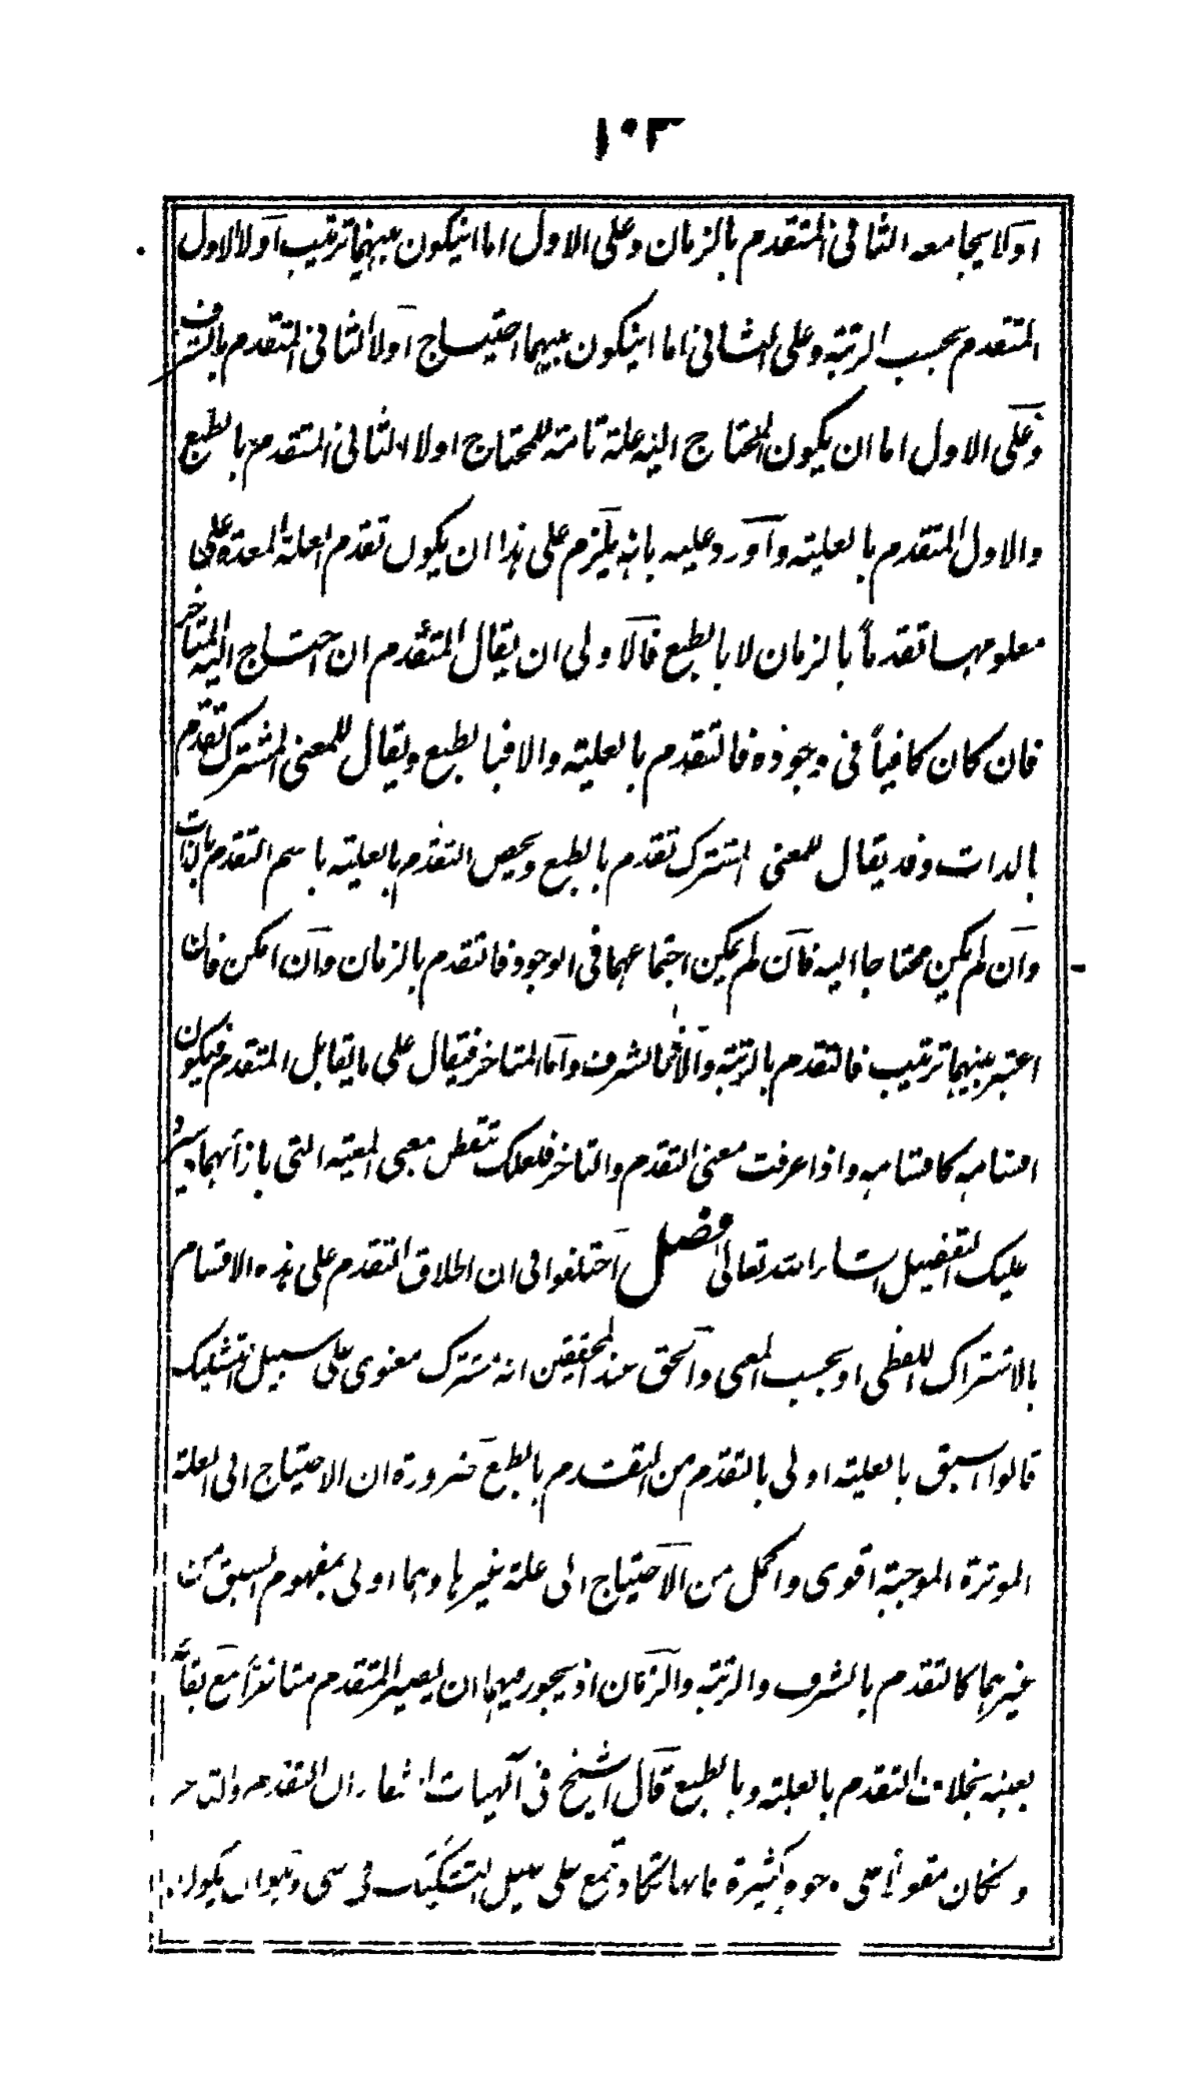 ١٠٣
اولا يجامعه الثانى المتقدم بالزمان وعلى الاول اما ان يكون بينهما ترتيب اولا الاول
المتقدم بحسب الرتبة وعلى الثانى اما ان يكون بينهما احتياج اولا الثانى المتقدم بالشرف
وعلى الاول اما ان يكون المحتاج اليه علة تامة للمحتاج اولا الثانى المتقدم بالطبع
والاول المتقدم بالعلية واورد عليه بانه يلزم على هذا ان يكون تقدم العلة المعدة على
معلومها تقدماً بالزمان لا بالطبع فالاولى ان يقال المتقدم ان احتاج اليه المتاخر
فان كان كافياً فى وجوده فالتقدم بالعلية والا فبالطبع ويقال للمعنى المشترك تقدم
بالذات وقد يقال للمعنى المشترك تقدم بالطبع ويخص التقدم بالعلية باسم التقدم بالذات
وان لم يكن محتاجا اليه فان لم يمكن اجتماعهما فى الوجود فالتقدم بالزمان وان امكن فان
اعتبر بينهما ترتيب فالتقدم بالرتبة والا فبالشرف واما المتاخر فيقال على ما يقابل المتقدم فيكون
اقسامه كاقسامه واذا عرفت معنى التقدم والتاخر فلعلك تتفطن معنى المعية التى بازائهما
عليك التفصيل انشاء الله تعالى فصل اختلفوا فى ان اطلاق التقدم على هذه الاقسام
بالاشتراك اللفظى او بحسب المعنى والحق عند المحققين انه مشترك معنوى على سبيل التشكيك
قالوا السبق بالعلية اولى بالتقدم من التقدم بالطبع ضرورة ان الاحتياج الى العلة
الموثرة الموجبة اقوى واكمل من الاحتياج الى علة غيرها وهما اولى بمفهوم السبق من
غيرهما كالتقدم بالشرف والرتبة والزمان اذ يجوز فيهما ان يصير المتقدم متاخراً مع بقائه
بعينه بخلاف التقدم بالعلية وبالطبع قال الشيخ فى آلهيات الشفاء ان التقدم والتاخر
وان كان مقولاً على وجوه كثيرة فانها تكاد تجمع على سبيل التشكيك فى شى وهو ان يكون